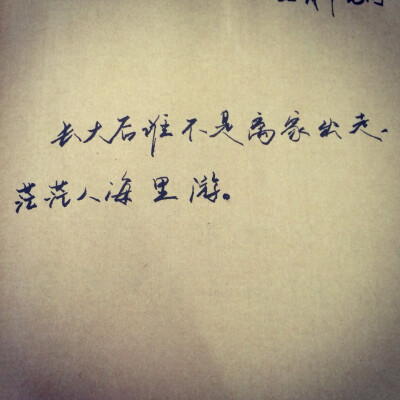 长大后谁不是离家出走、
茫茫人海里游。